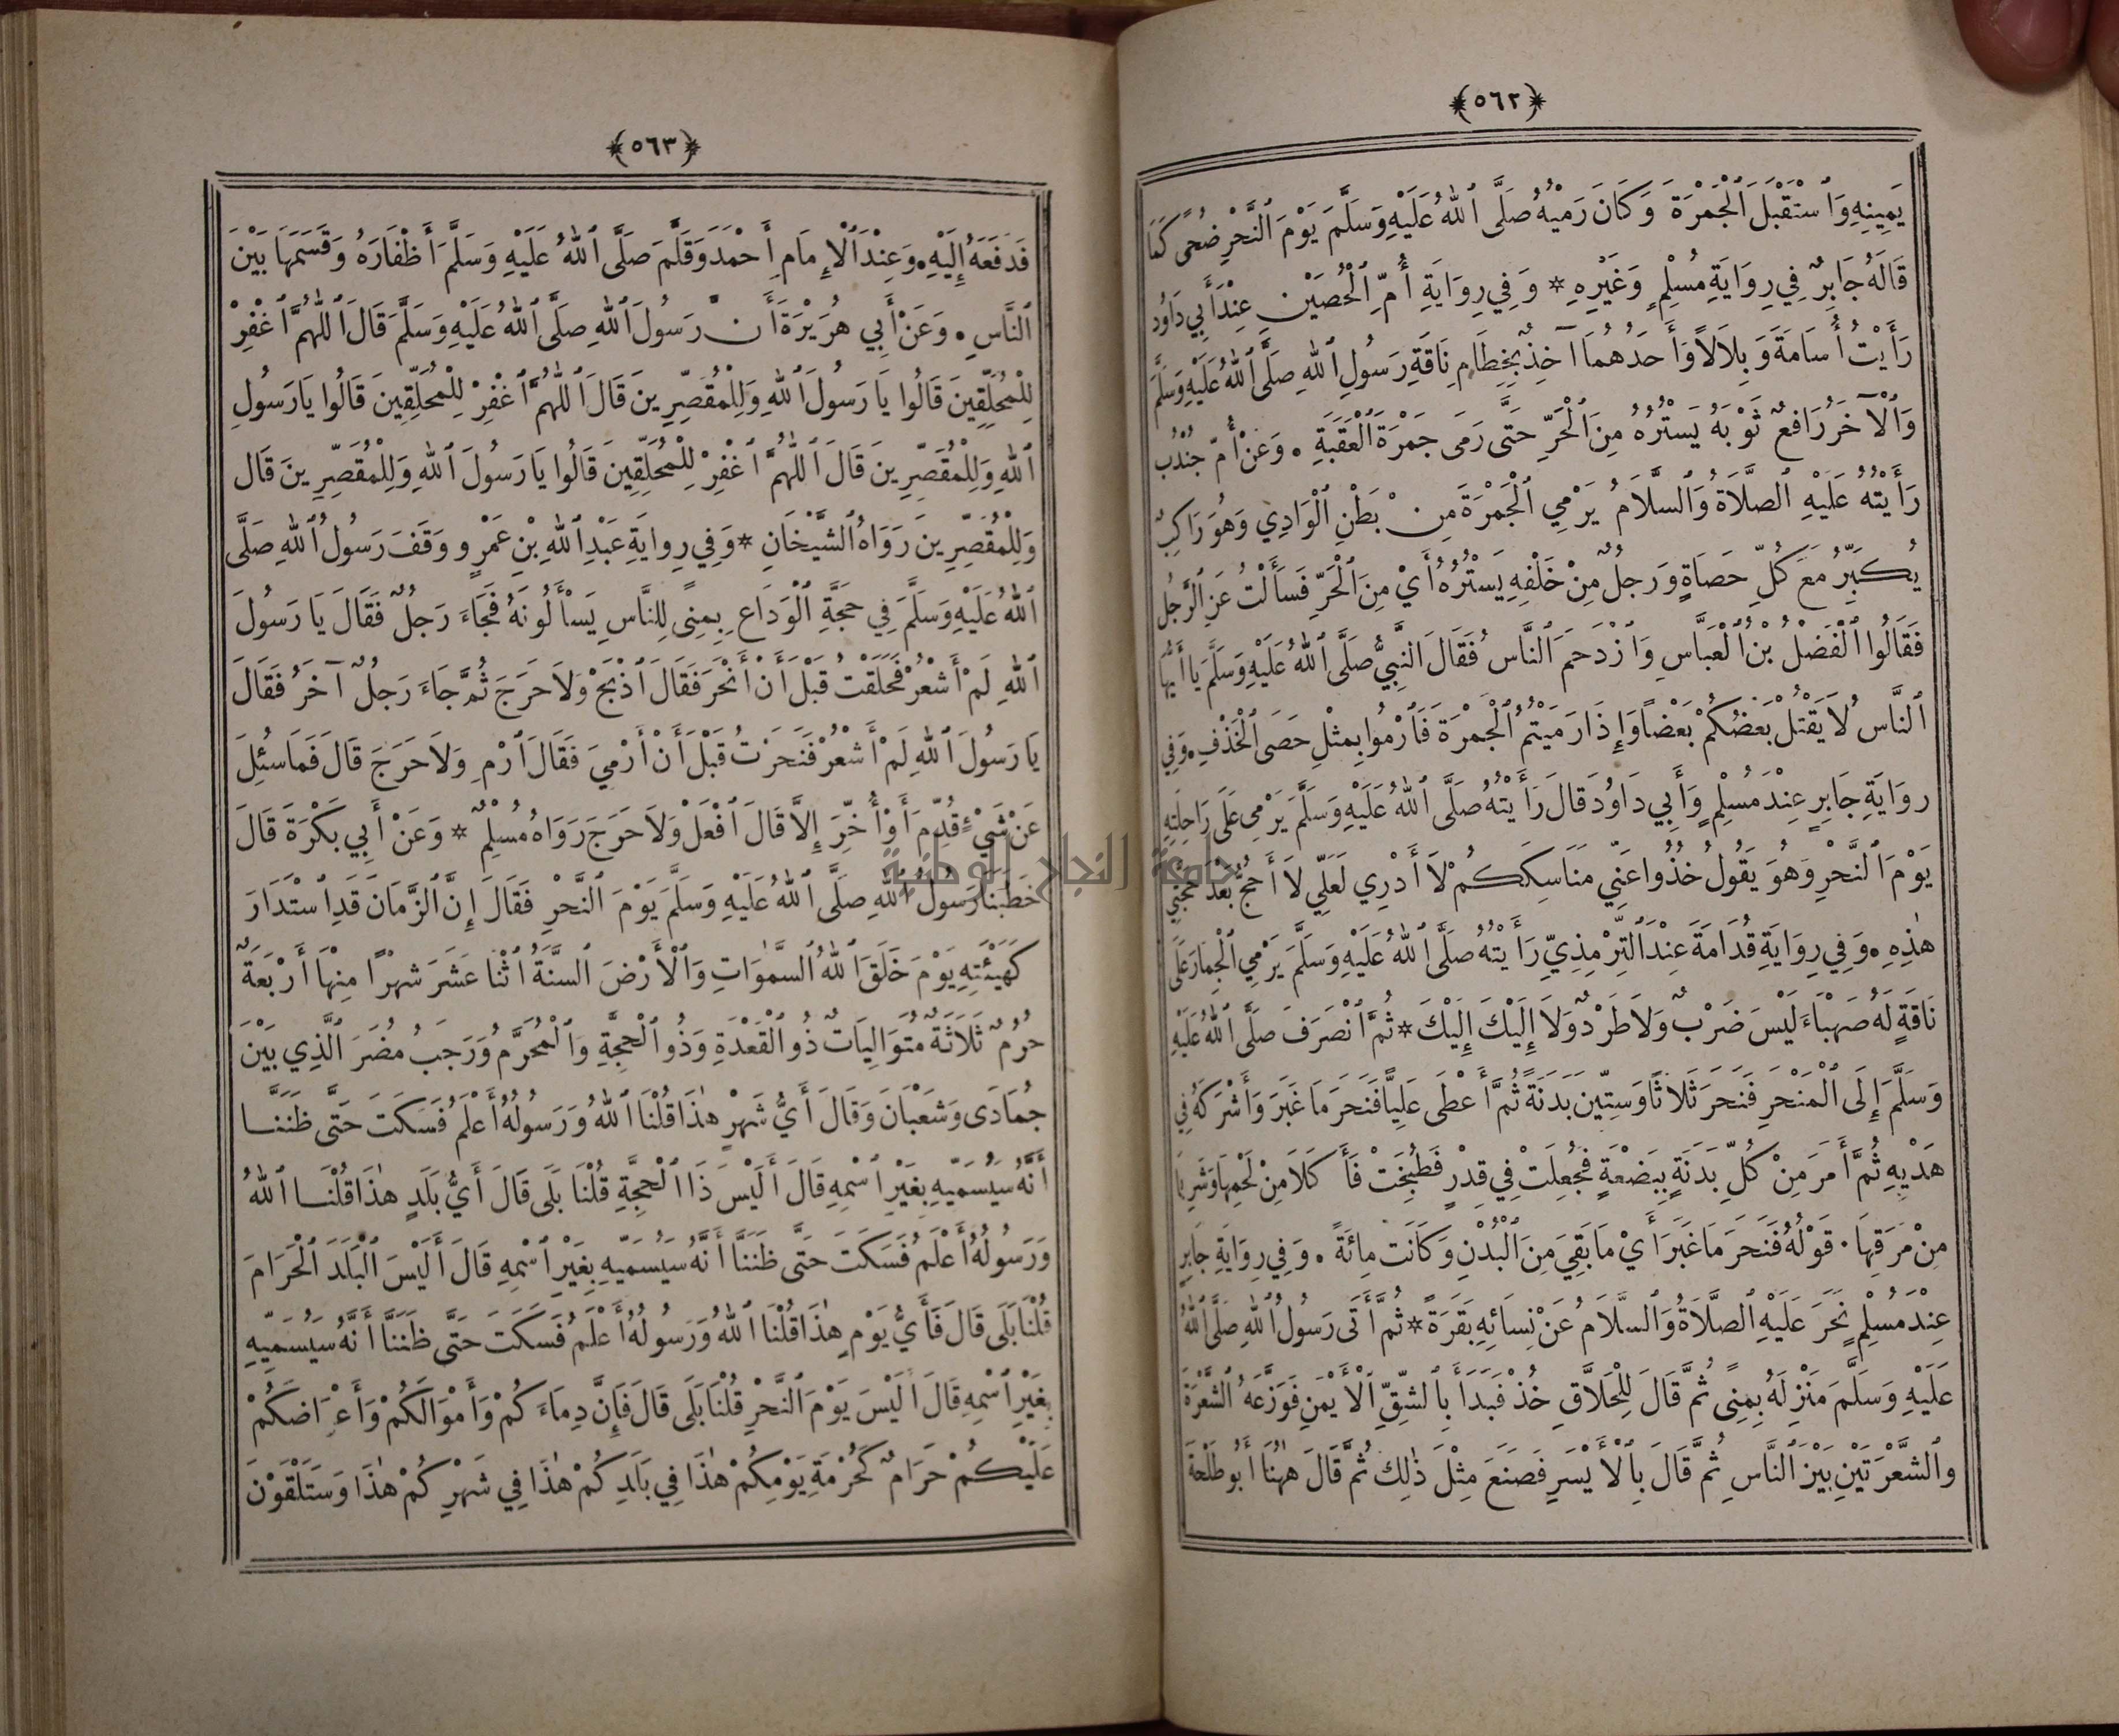 ﴿٥٦٢﴾
يَمِينِهِ وَٱسْتَقْبَلَ ٱلْجَمْرَةَ وَكَانَ رَمْيُهُ صَلَّى ٱللهُ عَلَيْهِ وَسَلَّمَ يَوْمَ ٱلنَّحْرِ ضُحًى كَمَا
قَالَهُ جَابِرٌ فِي رِوَايَةِ مُسْلِمٍ وَغَيْرِهِ * وَفِي رِوَايَةِ أُمِّ ٱلْحُصَيْنِ عِنْدَ أَبِي دَاوُدَ
رَأَيْتُ أُسَامَةَ وَبِلَالًا وَأَحَدُهُمَا آخِذٌ بِخِطَامِ نَاقَةِ رَسُولِ ٱللهِ صَلَّى ٱللهُ عَلَيْهِ وَسَلَّمَ
وَٱلْآخَرُ رَافِعٌ ثَوْبَهُ يَسْتُرُهُ مِنَ ٱلْحَرِّ حَتَّى رَمَى جَمْرَةَ ٱلْعَقَبَةِ . وَعَنْ أُمِّ جُنْدُبٍ
رَأَيْتُهُ عَلَيْهِ ٱلصَّلَاةُ وَٱلسَّلَامُ يَرْمِي ٱلْجَمْرَةَ مِنْ بَطْنِ ٱلْوَادِي وَهُوَ رَاكِبٌ
يُكَبِّرُ مَعَ كُلِّ حَصَاةٍ وَرَجُلٌ مِنْ خَلْفِهِ يَسْتُرُهُ أَيْ مِنَ ٱلْحَرِّ فَسَأَلْتُ عَنِ ٱلرَّجُلِ
فَقَالُوا ٱلْفَضْلُ بْنُ ٱلْعَبَّاسِ وَٱزْدَحَمَ ٱلنَّاسُ فَقَالَ ٱلنَّبِيُّ صَلَّى ٱللهُ عَلَيْهِ وَسَلَّمَ يَا أَيُّهَا
ٱلنَّاسُ لَا يَقْتُلْ بَعْضُكُمْ بَعْضًا وَإِذَا رَمَيْتُمُ ٱلْجَمْرَةَ فَٱرْمُوا بِمِثْلِ حَصَى ٱلْخَذْفِ . وَفِي
رِوَايَةِ جَابِرٍ عِنْدَ مُسْلِمٍ وَأَبِي دَاوُدَ قَالَ رَأَيْتُهُ صَلَّى ٱللهُ عَلَيْهِ وَسَلَّمَ يَرْمِي عَلَى رَاحِلَتِهِ
يَوْمَ ٱلنَّحْرِ وَهُوَ يَقُولُ خُذُوا عَنِّي مَنَاسِكَكُمْ لَا أَدْرِي لَعَلِّي لَا أَحُجُّ بَعْدَ حَجَّتِي
هٰذِهِ . وَفِي رِوَايَةِ قُدَامَةَ عِنْدَ ٱلتِّرْمِذِيِّ رَأَيْتُهُ صَلَّى ٱللهُ عَلَيْهِ وَسَلَّمَ يَرْمِي ٱلْجِمَارَ عَلَى
نَاقَةٍ لَهُ صَهْبَاءَ لَيْسَ ضَرْبٌ وَلَا طَرْدٌ وَلَا إِلَيْكَ إِلَيْكَ * ثُمَّ ٱنْصَرَفَ صَلَّى ٱللهُ عَلَيْهِ
وَسَلَّمَ إِلَى ٱلْمَنْحَرِ فَنَحَرَ ثَلَاثًا وَسِتِّينَ بَدَنَةً ثُمَّ أَعْطَى عَلِيًّا فَنَحَرَ مَا غَبَرَ وَأَشْرَكَهُ فِي
هَدْيِهِ ثُمَّ أَمَرَ مِنْ كُلِّ بَدَنَةٍ بِبَضْعَةٍ فَجُعِلَتْ فِي قِدْرٍ فَطُبِخَتْ فَأَكَلَا مِنْ لَحْمِهَا وَشَرِبَا
مِنْ مَرَقِهَا . قَوْلُهُ فَنَحَرَ مَا غَبَرَ أَيْ مَا بَقِيَ مِنَ ٱلْبُدْنِ وَكَانَتْ مِائَةً . وَفِي رِوَايَةِ جَابِرٍ
عِنْدَ مُسْلِمٍ نَحَرَ عَلَيْهِ ٱلصَّلَاةُ وَٱلسَّلَامُ عَنْ نِسَائِهِ بَقَرَةً * ثُمَّ أَتَى رَسُولُ ٱللهِ صَلَّى ٱللهُ
عَلَيْهِ وَسَلَّمَ مَنْزِلَهُ بِمِنًى ثُمَّ قَالَ لِلْحَلَّاقِ خُذْ فَبَدَأَ بِٱلشِّقِّ ٱلْأَيْمَنِ فَوَزَّعَهُ ٱلشَّعْرَةَ
وٱلشَّعْرَتَيْنِ بَيْنَ ٱلنَّاسِ ثُمَّ قَالَ بِٱلْأَيْسَرِ فَصَنَعَ مِثْلَ ذٰلِكَ ثُمَّ قَالَ هٰهُنَا أَبُو طَلْحَةَ
﴿٥٦٣﴾
فَدَفَعَهُ إِلَيْهِ . وَعِنْدَ ٱلْإِمَامِ أَحْمَدَ وَقَلَّمَ صَلَّى ٱللهُ عَلَيْهِ وَسَلَّمَ أَظْفَارَهُ وَقَسَمَهَا بَيْنَ
ٱلنَّاسِ . وَعَنْ أَبِي هُرَيْرَةَ أَنَّ رَسُولَ ٱللهِ صَلَّى ٱللهُ عَلَيْهِ وَسَلَّمَ قَالَ ٱللّٰهُمَّ ٱغْفِرْ
لِلْمُحَلِّقِينَ قَالُوا يَا رَسُولَ ٱللهِ وَلِلْمُقَصِّرِينَ قَالَ ٱللّٰهُمَّ ٱغْفِرْ لِلْمُحَلِّقِينَ قَالُوا يَا رَسُولَ
ٱللهِ وَلِلْمُقَصِّرِينَ قَالَ ٱللّٰهُمَّ ٱغْفِرْ لِلْمُحَلِّقِينَ قَالُوا يَا رَسُولَ ٱللهِ وَلِلْمُقَصِّرِينَ قَالَ
وَلِلْمُقَصِّرِينَ رَوَاهُ ٱلشَّيْخَانِ * وَفِي رِوَايَةِ عَبْدِ ٱللهِ بْنِ عَمْرٍو وَقَفَ رَسُولُ ٱللهِ صَلَّى
ٱللهُ عَلَيْهِ وَسَلَّمَ فِي حَجَّةِ ٱلْوَدَاعِ بِمِنًى لِلنَّاسِ يَسْأَلُونَهُ فَجَاءَ رَجُلٌ فَقَالَ يَا رَسُولَ
ٱللهِ لَمْ أَشْعُرْ فَحَلَقْتُ قَبْلَ أَنْ أَنْحَرَ فَقَالَ ٱذْبَحْ وَلَا حَرَجَ ثُمَّ جَاءَ رَجُلٌ آخَرُ فَقَالَ
يَا رَسُولَ ٱللهِ لَمْ أَشْعُرْ فَنَحَرْتُ قَبْلَ أَنْ أَرْمِيَ فَقَالَ ٱرْمِ وَلَا حَرَجَ قَالَ فَمَا سُئِلَ
عَنْ شَيْءٍ قُدِّمَ أَوْ أُخِّرَ إِلَّا قَالَ ٱفْعَلْ وَلَا حَرَجَ رَوَاهُ مُسْلِمٌ * وَعَنْ أَبِي بَكْرَةَ قَالَ
خَطَبَنَا رَسُولُ ٱللهِ صَلَّى ٱللهُ عَلَيْهِ وَسَلَّمَ يَوْمَ ٱلنَّحْرِ فَقَالَ إِنَّ ٱلزَّمَانَ قَدِ ٱسْتَدَارَ
كَهَيْئَتِهِ يَوْمَ خَلَقَ ٱللهُ ٱلسَّمٰوَاتِ وَٱلْأَرْضَ ٱلسَّنَةُ ٱثْنَا عَشَرَ شَهْرًا مِنْهَا أَرْبَعَةٌ
حُرُمٌ ثَلَاثَةٌ مُتَوَالِيَاتٌ ذُو ٱلْقَعْدَةِ وَذُو ٱلْحِجَّةِ وَٱلْمُحَرَّمُ وَرَجَبُ مُضَرَ ٱلَّذِي بَيْنَ
جُمَادَى وَشَعْبَانَ وَقَالَ أَيُّ شَهْرٍ هٰذَا قُلْنَا ٱللهُ وَرَسُولُهُ أَعْلَمُ فَسَكَتَ حَتَّى ظَنَنَّا
أَنَّهُ سَيُسَمِّيهِ بِغَيْرِ ٱسْمِهِ قَالَ أَلَيْسَ ذَا ٱلْحِجَّةِ قُلْنَا بَلَى قَالَ أَيُّ بَلَدٍ هٰذَا قُلْنَا ٱللهُ
وَرَسُولُهُ أَعْلَمُ فَسَكَتَ حَتَّى ظَنَنَّا أَنَّهُ سَيُسَمِّيهِ بِغَيْرِ ٱسْمِهِ قَالَ أَلَيْسَ ٱلْبَلَدَ ٱلْحَرَامَ
قُلْنَا بَلَى قَالَ فَأَيُّ يَوْمٍ هٰذَا قُلْنَا ٱللهُ وَرَسُولُهُ أَعْلَمُ فَسَكَتَ حَتَّى ظَنَنَّا أَنَّهُ سَيُسَمِّيهِ
بِغَيْرِ ٱسْمِهِ قَالَ أَلَيْسَ يَوْمَ ٱلنَّحْرِ قُلْنَا بَلَى قَالَ فَإِنَّ دِمَاءَكُمْ وَأَمْوَالَكُمْ وَأَعْرَاضَكُمْ
عَلَيْكُمْ حَرَامٌ كَحُرْمَةِ يَوْمِكُمْ هٰذَا فِي بَلَدِكُمْ هٰذَا فِي شَهْرِكُمْ هٰذَا وَسَتَلْقَوْنَ
جامعة النجاح الوطنية